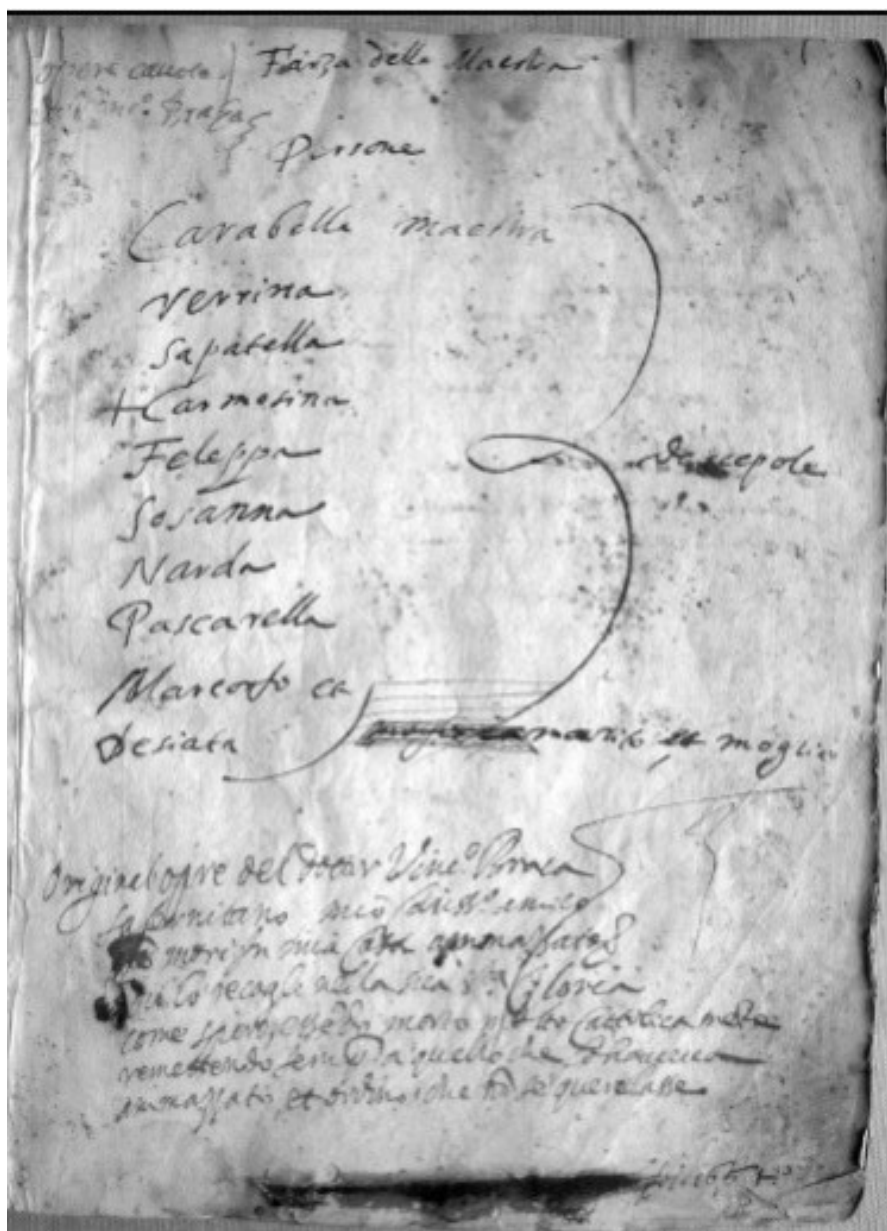 opere cavate Farza della Maestra
Braca
Persone
Carabella maestra
Verrina
Sapatella
+ Carmosina
Feleppa
Sosanna
Narda
Pascarella
descepole
Marcorfo et
Desiata marito et moglie
Originel opre del Dottor Vinc.º Braca
Salernitano mio Cariss.º amico
morì in mia casa ammassato
lo recoglie nella sua s.ta Gloria
come spero essendo morto molto Cattolicamente
remettendo a quello che l'haveva
ammassato et ordinò che nō se querelasse